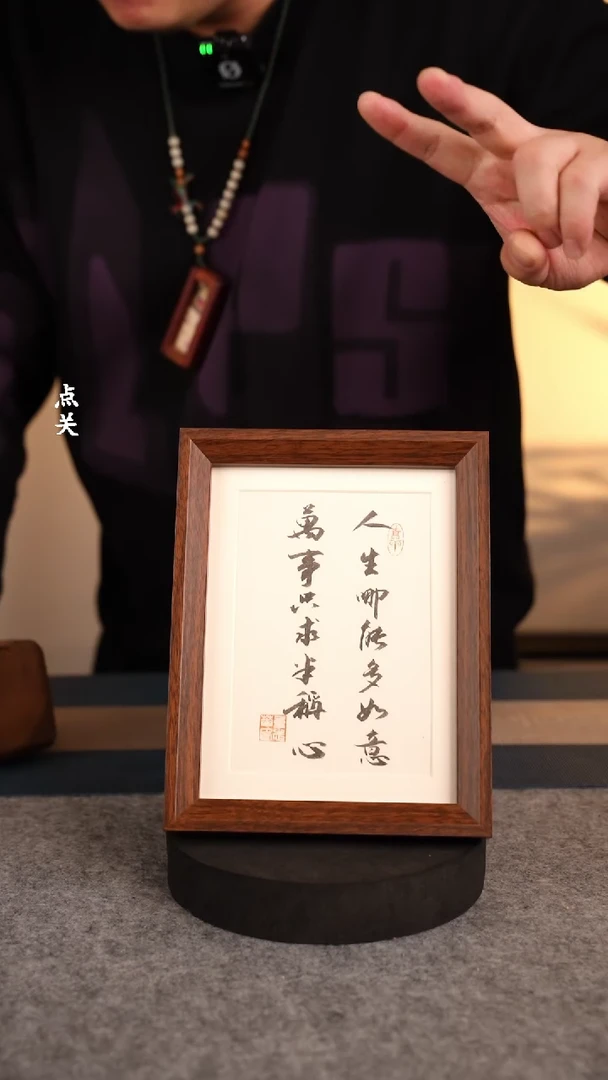 点关
人生哪能多如意
萬事只求半稱心